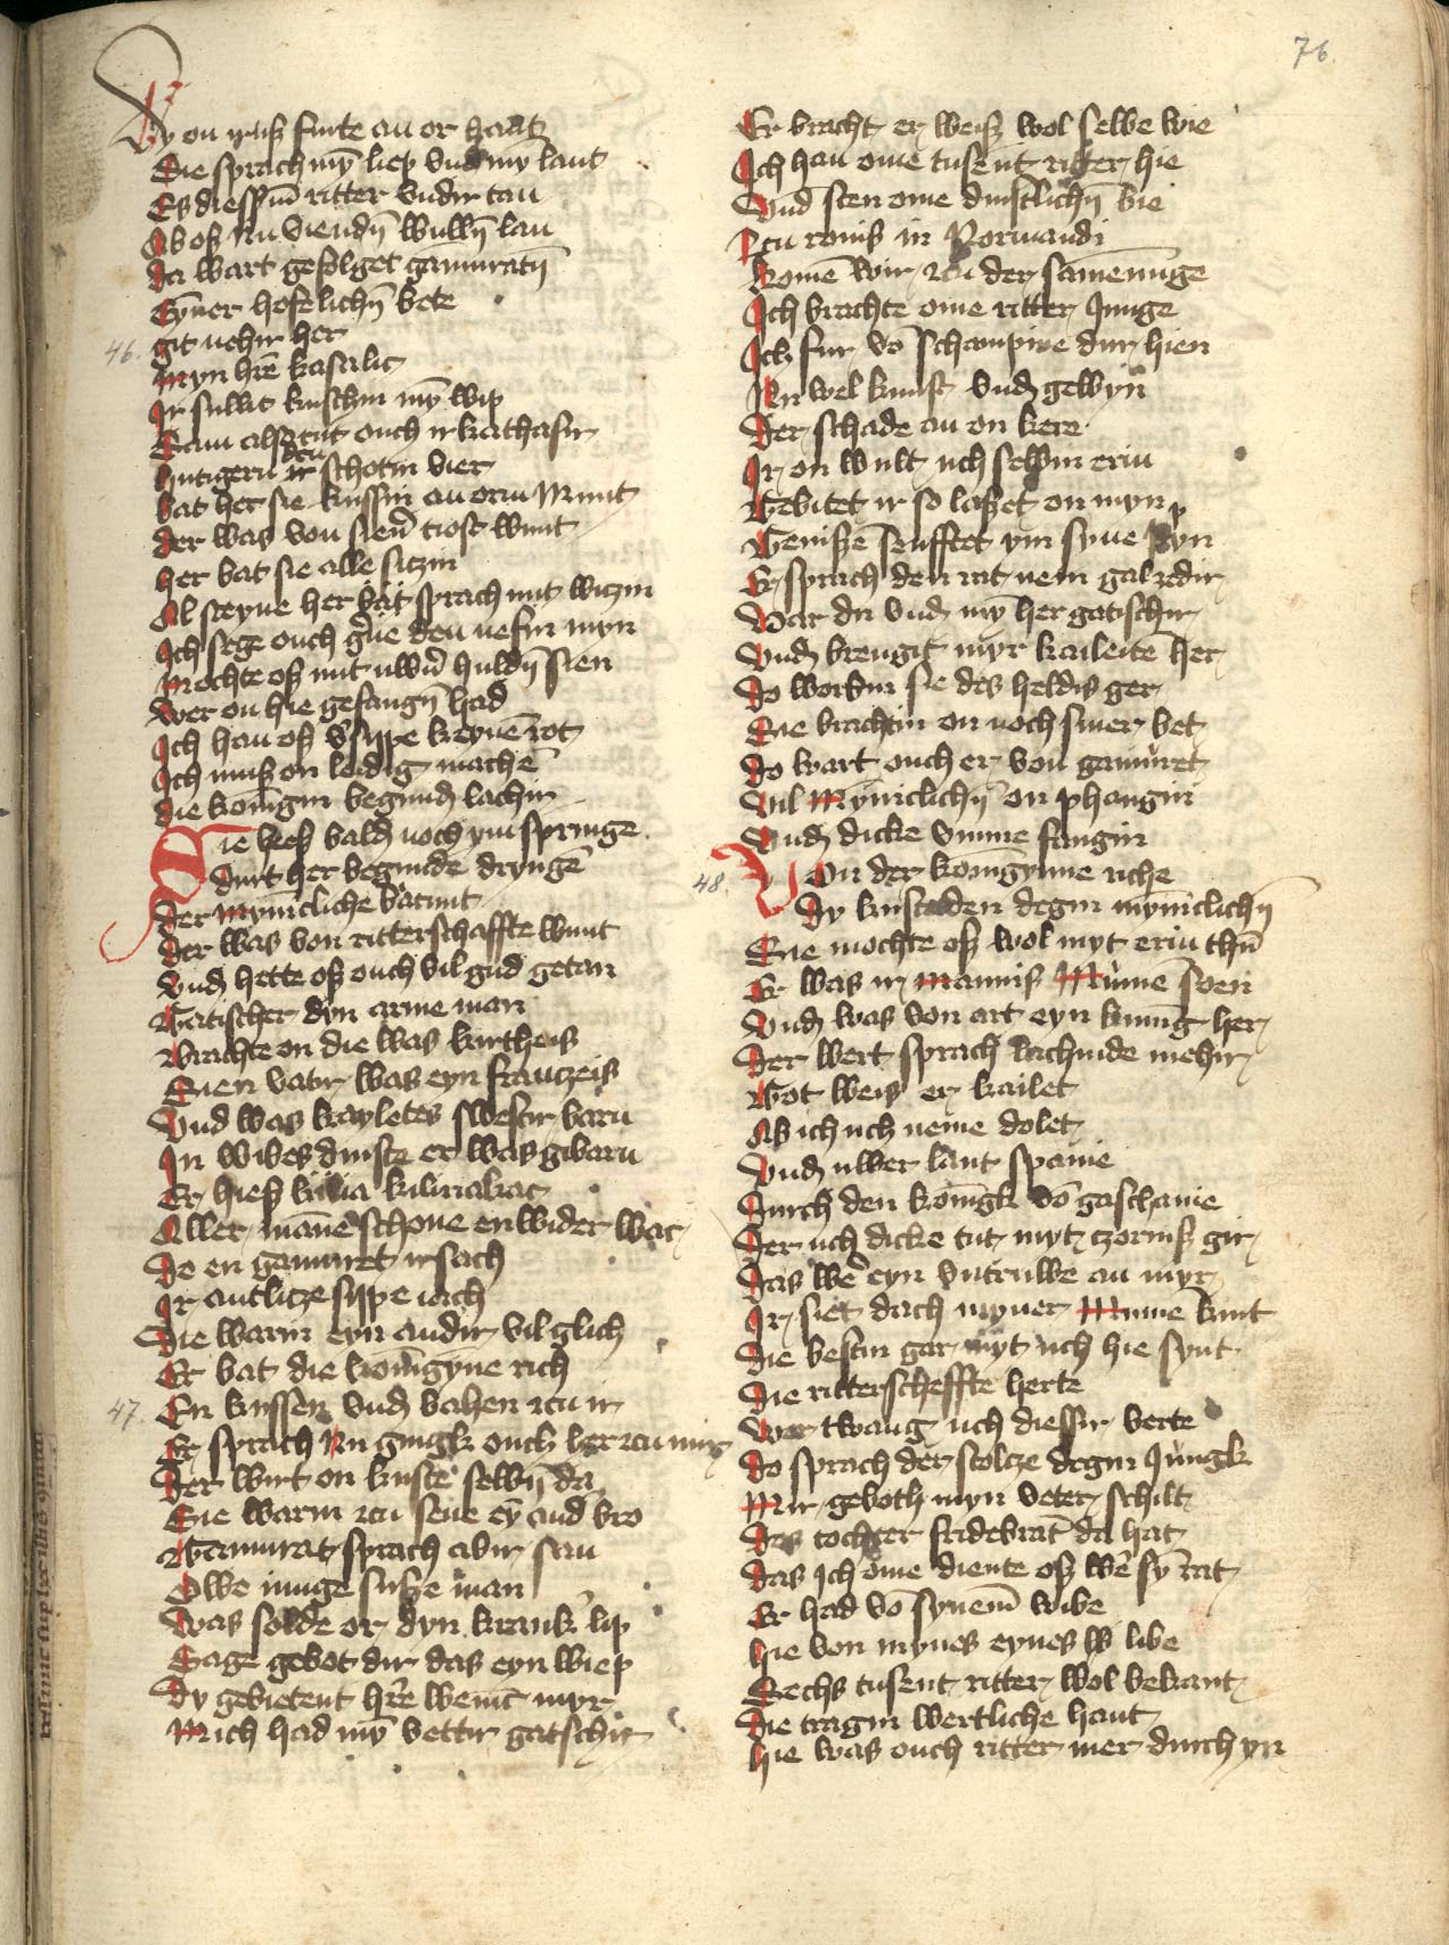 76.
Dy on irliß furte an or hant
Die sprach mȳ liep vnd mȳ lant
Es diessīn ritter vndir tan
Ab oß nu viendn̄ wulln̄ lan
Da wart gefolget gamuratn̄
Eyner hofelichn̄ bete
46. git nehir her
Myn hr̄e kasalic
Ir sullit kuschin mȳ wip
Sam also tut ouch ir kathafir
hutigern dem ir schotin vier
bat her sie kussin an oran Munt
der was von sien̄ tiost wunt
her bat sie alle sitzin
Al steyne her bat sprach mit witzin
Ich sege ouch g̾ne den nefin myn
Mochte oß mit uwn̄ huldn̄ sien
wer on hie gefangn̄ had
Ich han oß v̾sype keynē rot
Ich muß on leidig machē
die konīgin begund lachin
Sie hieß bald noch ym springe
Durt her begunde dryngē
der mynīcliche batunt
der was von ritterschaffte wunt
vnd hette oß ouch vil gud getan
Gatischer dyn arme man
Brachte on die was kurtheis
Sien vatir was eyn franczeis
Vnd was kayletes swestir barn
In wibes dinste er was gibarn
Er hieß killia killirialac
Aller mānē schone en wider wac
Do en gamuret irsach
Ir antlicze sype iach
Die warin eyn andir vil glich
Er bat die konīgyne rich
47. En kussen vnd vahen zcu ir
Er sprach nu gingk ouch her zcu mir
Der wirt on kuste selwn̄ da
Sie warin zcu sene eȳ and vro
Gamurat sprach abir san
Owe iunge susze man
was solde or dyn krank lip
Sage gebot dir das eyn wiep
Dy gebietent hr̄e wenīc myr
Mich had mȳ vettir gatschir
Er bracht er weiß wol selwe wie
Ich han ome tusent ritter hie
Vnd sten ome dinstlichn̄ bie
Zcu roniß in Normandi
komē wir zcu der samenūge
Ich brachte ome ritter Junge
Ich fur vō schampine dur hien
Nu wel kunst vnd gewyn
Der schade an on kere
Ir on wult uch selwin erin
Gebitet ir so laßet on myn
Genisze seufftet ym syne pyn
Er sprach den rat nem gal zcdir
Var du vnd mȳ her gatischir
Vnd brengit myr kaileite her
Do workin sie des heldis ger
Sie brachtin on noch siner bet
do wart ouch er von gamuret
Vil Mynīclichn̄ on phangin
Vnd dicke vmme fangin
48. Von der konīgynne riche
Dy kustedden degin mynīclichn̄
Sie mochte oß wol myt erin thū
Er was ir mannis Mume soen
Vnd was von art eyn kunīg her
Der wert sprach lachinde mehir
Got weis er kailet
Ab ich uch neme dolet
Vnd uwer lant spanie
Durch den konīgk vō gaschanie
Der uch dicke tut myt czorniß gir
Das we̾ eyn vntruwe an myr
Ir siet dach myner Mume kint
Die bestin gar myt uch hie synt
Die ritterscheffte herte
Wer twang uch diessir verte
Do sprach der stolcze degin Jungk
Mir geboth myn veter schilt
Des tochter fridebrat̄ da hat
Das ich ome diente oß we̾ sȳ rat
Er had vō synem̄ wibe
hie von mynes eynes libe
Sechs tusent ritter wol bekant
Die tragin wertliche hant
hie was ouch ritter mer durch yn